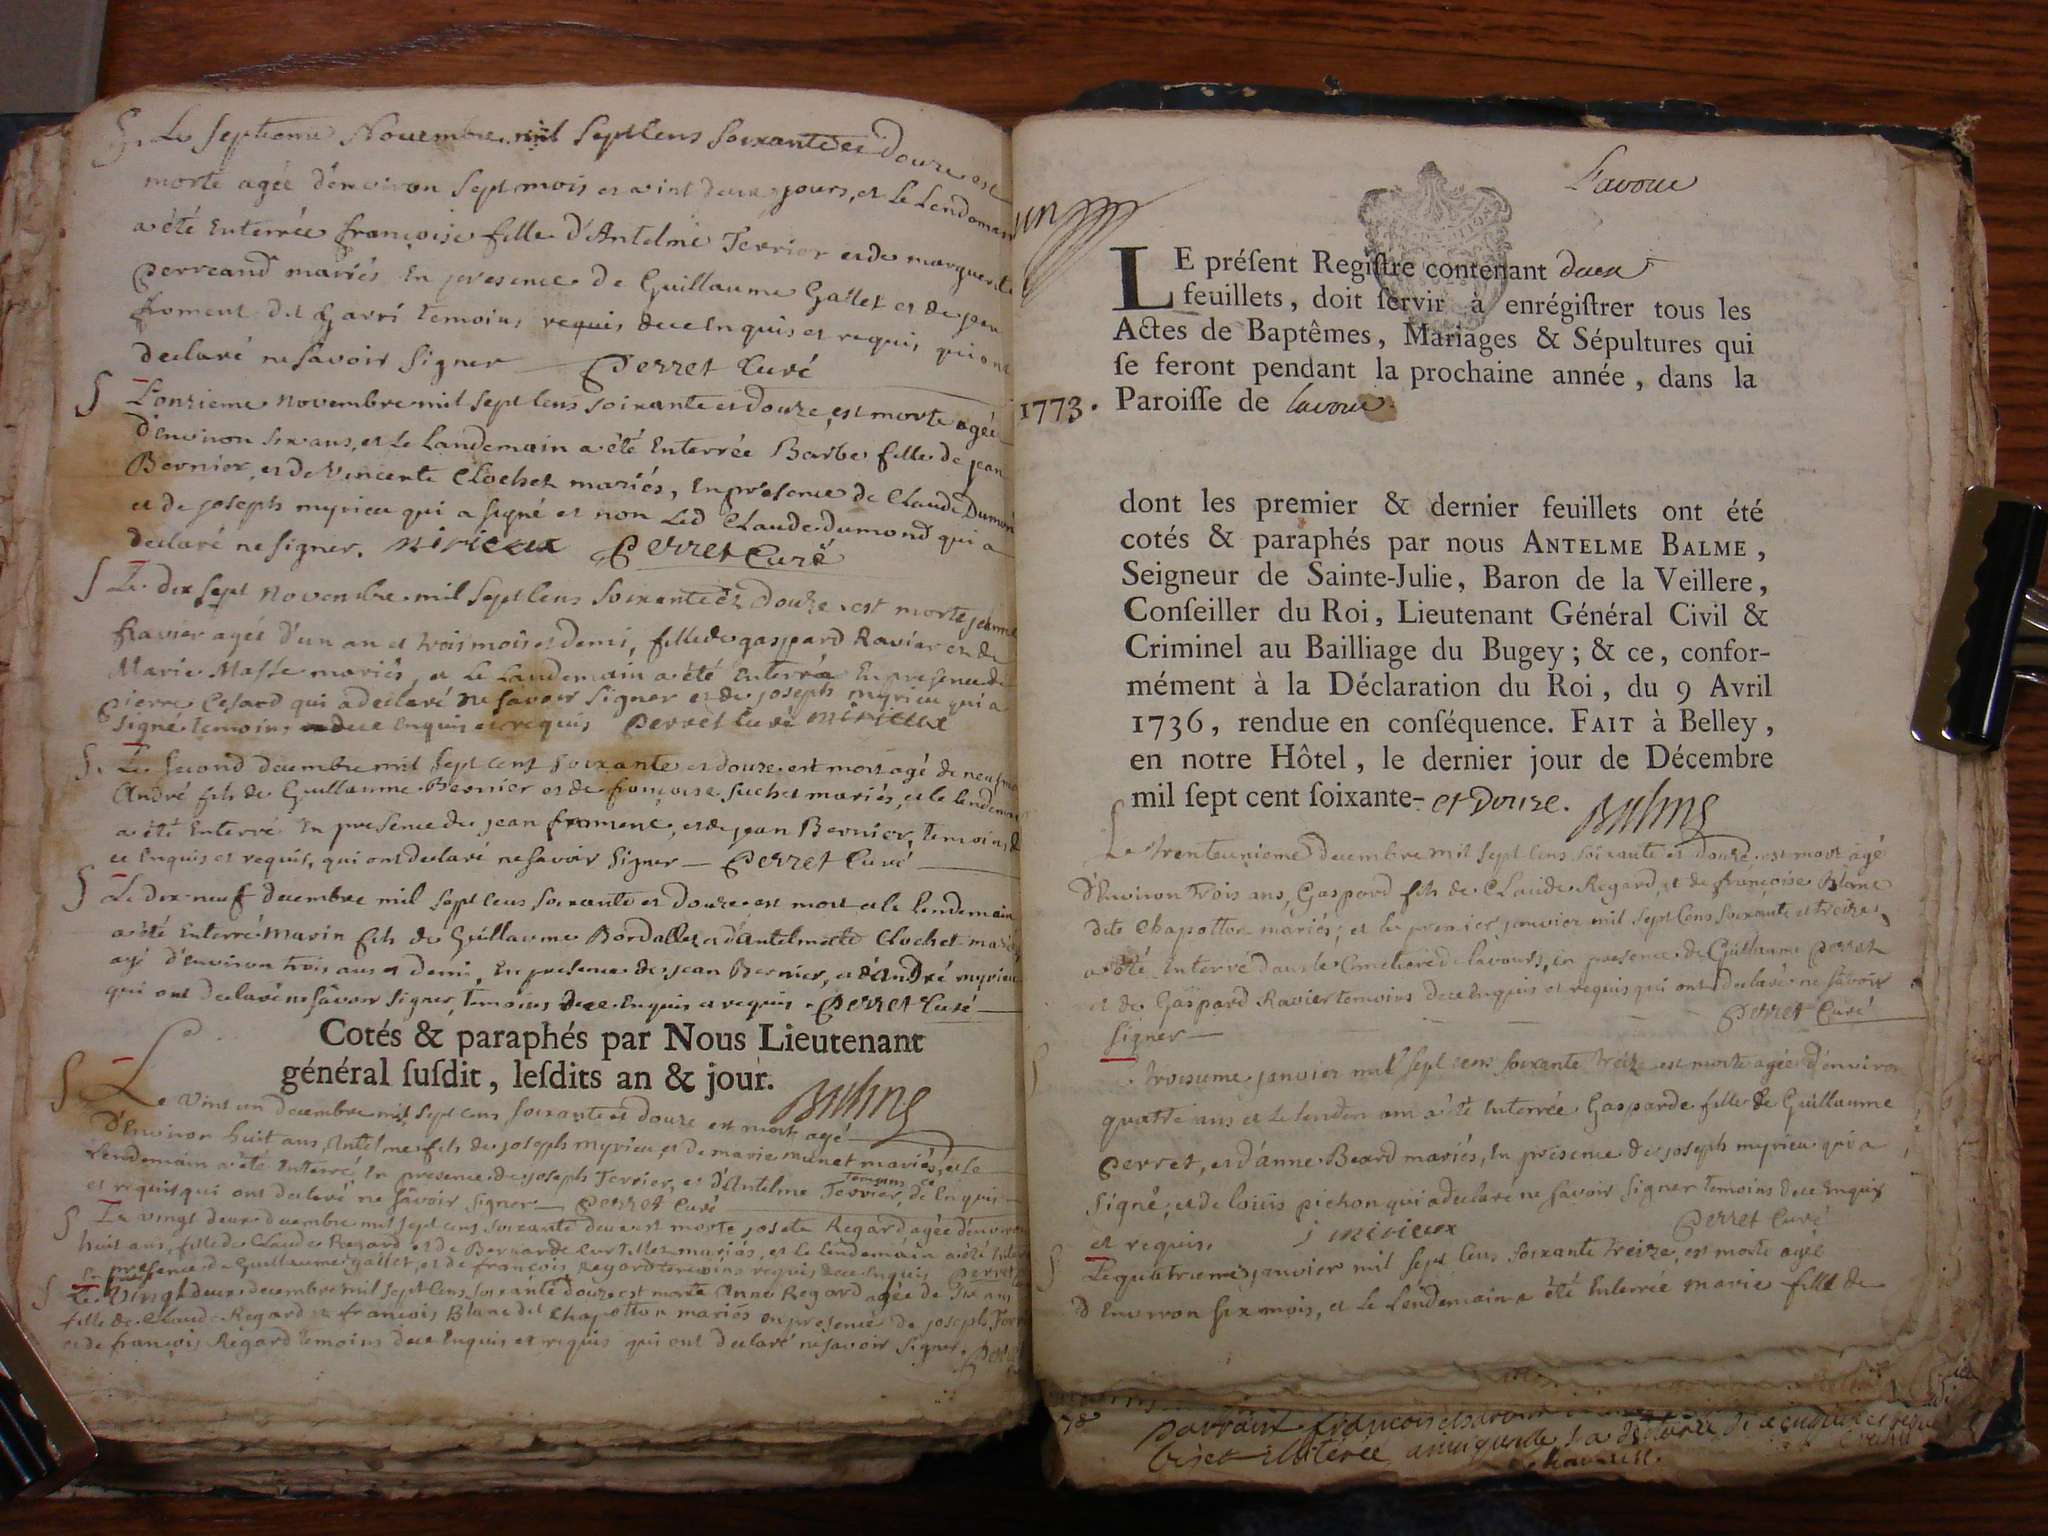 Le septieme Novembre mil sept Cens soixante et Douze est
morte agée d'environ sept mois et vint deux jours, et Le Lendemain
a été Enterrée françoise fille d'Antelme Terrier et de marguerite
Perreand mariés En presence de Guillaume Gallet et de jean
froment dit Gavri temoins requis de ce Enquis et requis qui ont
declaré ne savoir signer Perret Curé
L'onzieme novembre mil sept Cens soixante et douze, est morte agée
d'Environ six ans, et le Landemain a été Enterrée Barbe fille de jean
Bernier, et de Vincente Clochet mariés, En presence de Claude Dumond
et de joseph myrieu qui a signé et non Led Claude dumond qui a
declaré ne signer. mirieux Perret Curé
Le dix sept novembre mil sept Cens soixante et Douze est morte jeanne
Ravier agée d'un an et trois mois et demi, fille de gaspard Ravier et de
Marie Masse mariés, et Le Landemain a été Enterrée En presence de
pierre Cesard qui a declaré ne savoir signer et de joseph myrieu qui a
signé temoins de ce Enquis et requis Perret Curé mirieux
Le second decembre mil sept cens soixante et douze est mort agé de neuf
André fils de Guillaume Bernier et de françoise suchet mariés, et le lendemain
a été Enterré En presence de jean froment, et de jean Bernier, temoins de
ce Enquis et requis, qui ont declaré ne savoir signer — Perret Curé
Le dix neuf decembre mil sept cens soixante et douze est mort et le lendemain
a été Enterré Marin fils de Guillaume Bordallet et d'Antelmette Clochet mariés
agé d'Environ trois ans et demi, En presence de jean Bernier, et d'André myrieu
qui ont declaré ne savoir signer, temoins de ce Enquis et requis. Perret Curé
Cotés & paraphés par Nous Lieutenant
général ſuſdit, leſdits an & jour.
Le vint un decembre mil sept cens soixante et douze est mort agé
d'Environ huit ans, Antelme fils de joseph myrieu, et de marie munet mariés, et Le
Lendemain a été Enterré, En presence de joseph Terrier, et d'Antelme Terrier, temoins de ce Enquis
et requis qui ont declaré ne savoir signer — Perret Curé
Le vingt deux decembre mil sept cens soixante douze est morte josete Regard agée d'environ
huit ans, fille de Claude Regard et de Bernarde mariés, et Le lendemain a été
En presence de Guillaume gallet, et de françois Regard temoins requis de ce Enquis Perret
Le vingt deux decembre mil sept Cens soixante douze est morte Anne Regard agée de six ans
fille de Claude Regard et françois Blanc dit Chapotton mariés en presence de joseph
et de françois Regard temoins de ce Enquis et requis qui ont declaré ne savoir signer.
Lavoue
LE préſent Regiſtre contenant deux
feuillets, doit ſervir à enrégiſtrer tous les
Actes de Baptêmes, Mariages & Sépultures qui
ſe feront pendant la prochaine année, dans la
1773. Paroiſſe de Lavoue.
dont les premier & dernier feuillets ont été
cotés & paraphés par nous ANTELME BALME,
Seigneur de Sainte-Julie, Baron de la Veillere,
Conſeiller du Roi, Lieutenant Général Civil &
Criminel au Bailliage du Bugey; & ce, confor-
mément à la Déclaration du Roi, du 9 Avril
1736, rendue en conſéquence. FAIT à Belley,
en notre Hôtel, le dernier jour de Décembre
mil ſept cent ſoixante- et Douze.
Le trenteunieme decembre mil sept cens soixante et douze est mort agé
d'Environ trois ans, Gaspard fils de Claude Regard, et de françoise Blanc
dite Chapotton mariés; et le premier janvier mil sept Cens soixante et treize,
a été Enterré dans le Cimetiere de lavours, en presence de Guillaume Perret
et de Gaspard Ravier temoins de ce Enquis et requis qui ont declaré ne savoir
signer — Perret Curé
Le troisieme janvier mil sept cens soixante treize est morte agée d'environ
quatre ans et Le lendemain a été Enterrée Gasparde fille de Guillaume
Perret, et d'Anne Beard mariés, En presence de joseph myrieu qui a
signé, et de Louis pichon qui a declaré ne savoir signer temoins de ce Enquis
et requis. j mirieux Perret Curé
Le quatrieme janvier mil sept Cens soixante treize, est morte agée
d'Environ six mois, et Le Lendemain a été Enterrée Marie fille de
78